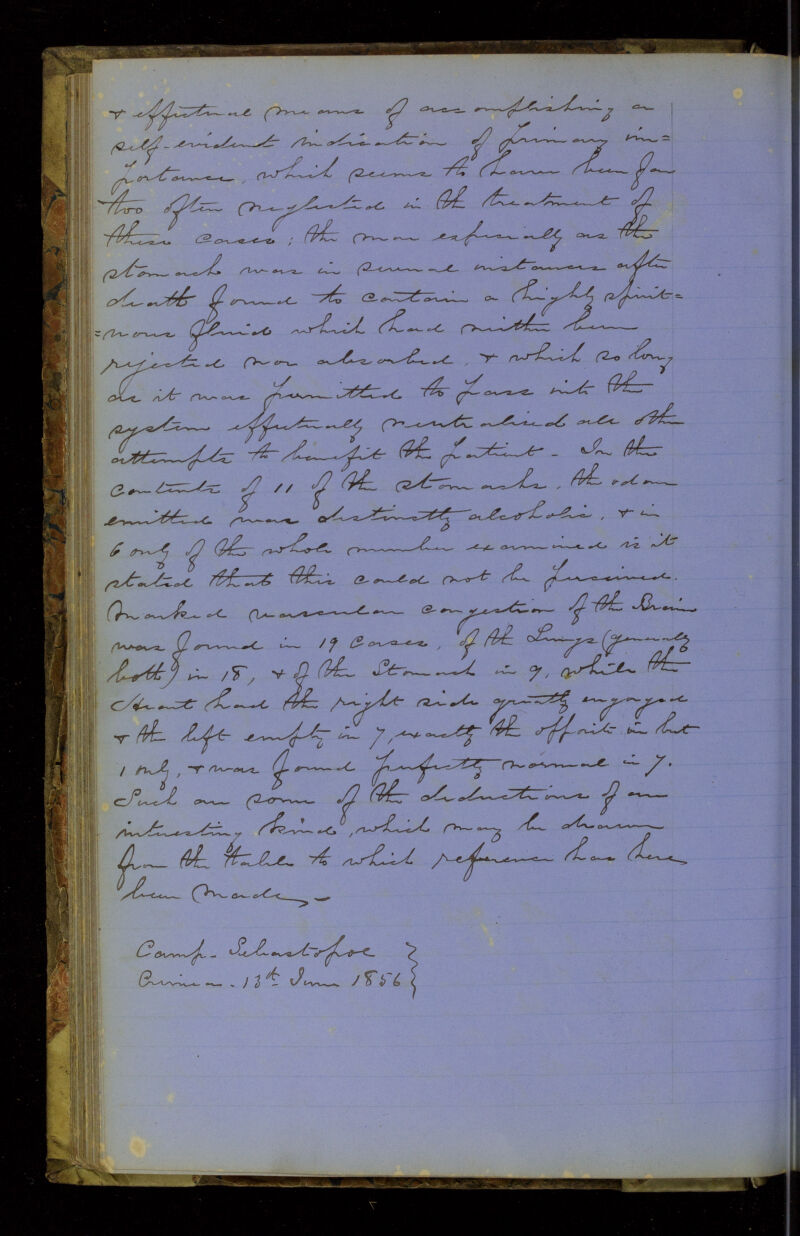 & effectual means of accomplishing a
self-evident indication of primary im=
portance, which seems to have been far
too often neglected in the treatment of
these cases; the more especially as the
stomach was in several instances after
death found to contain a highly spirit=
=uous fluid which had neither been
rejected nor absorbed, & which so long
as it was permitted to pass into the
system effectually neutralised all other
attempts to benefit the patient - In the
contents of 11 of the stomachs, the odour
emitted was distinctly alcoholic, & in
6 only of the whole number examined is it
stated that this could not be perceived.
Marked vascular congestion of the Brain
was found in 19 cases, of the Lungs (generally
both) in 18, & of the Stomach in 9, while the
Heart had the right side greatly engorged
& the left empty in 7, exactly the opposite in but
1 only, & was found perfectly normal in 7.
Such are some of the deductions of an
interesting kind, which may be drawn
from the table to which reference has here
been made -
Camp - Sebastopol
Crimea - 13th June 1856